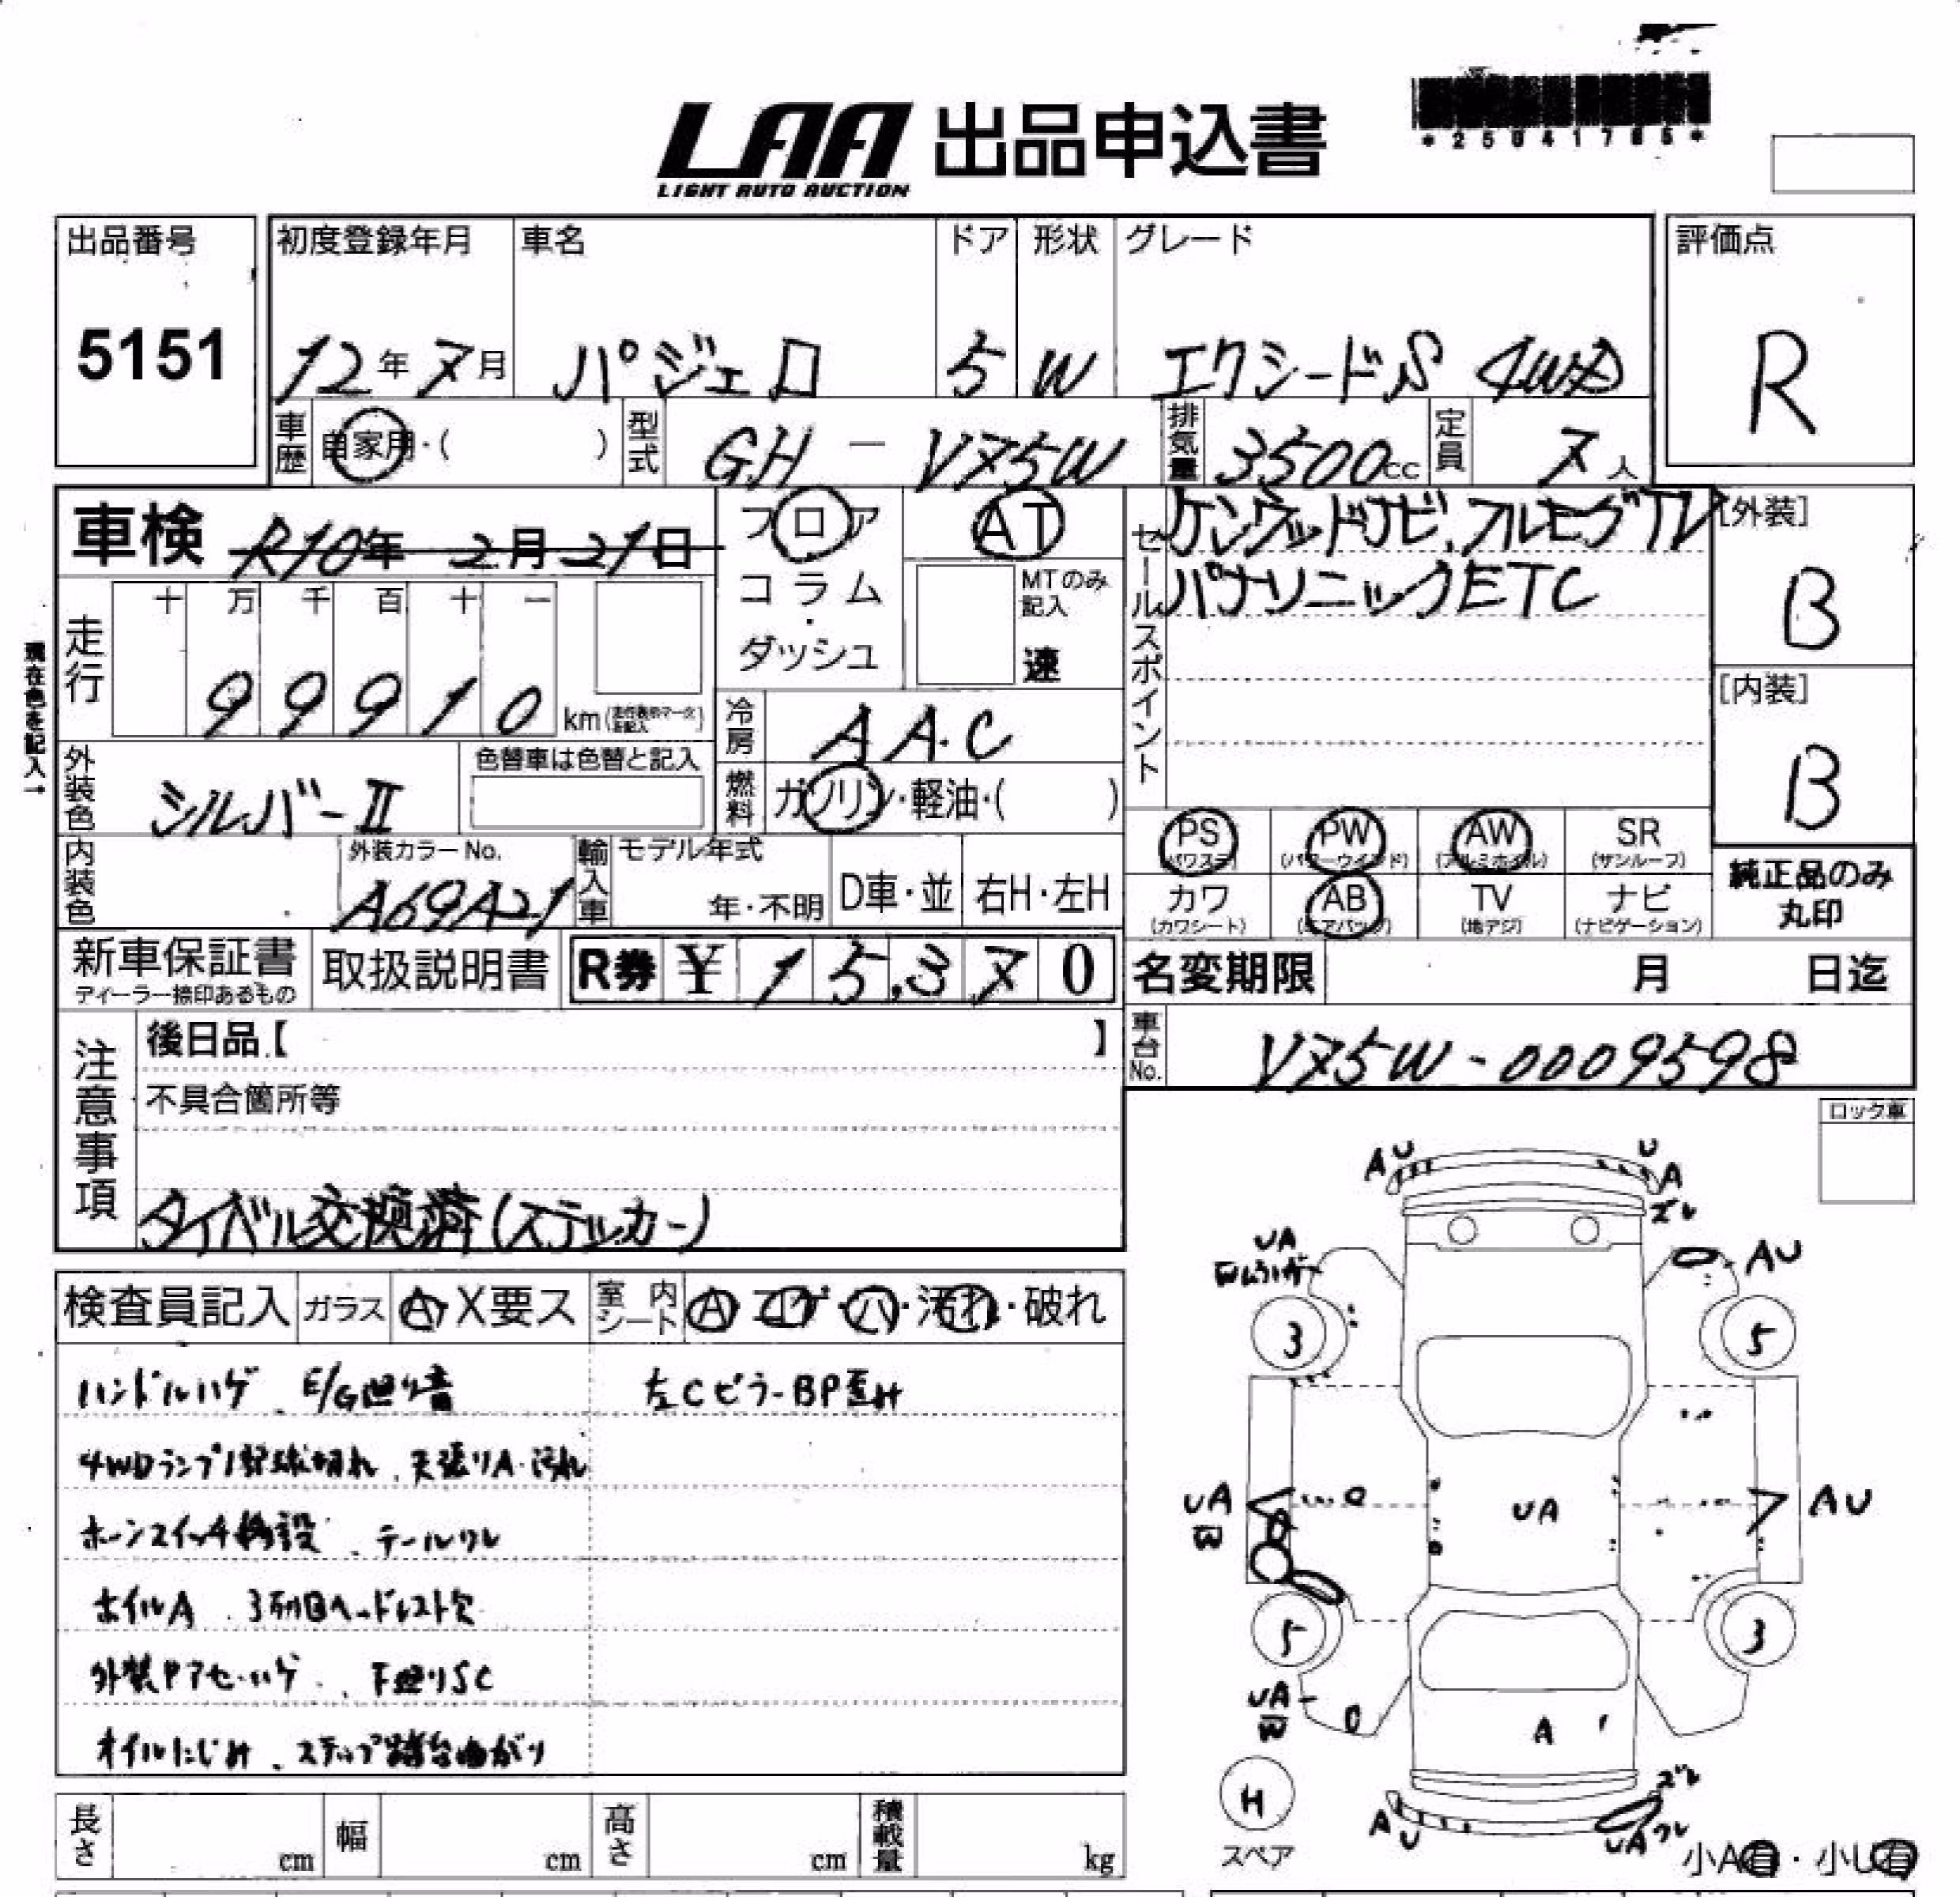 *25041765*
LAA 出品申込書
LIGHT AUTO AUCTION
出品番号 初度登録年月 車名 ドア 形状 グレード 評価点
5151 12年7月 パジェロ 5 W エクシードS 4WD R
車歴 自家用・( ) 型式 GH-V75W 排気量 3500cc 定員 7人
車検 R10年 2月21日
フロア AT
コラム・ダッシュ
MTのみ記入 速
セールスポイント
ケンウッドナビ、フルセグTV
パナソニックETC
[外装] B
[内装] B
現在色を記入→
走行 十 万 千 百 十 一
99910 km
冷房 AAC
外装色 シルバーII 色替車は色替と記入
燃料 ガソリン・軽油・( )
PS (パワステ) PW (パワーウインド) AW (アルミホイル) SR (サンルーフ)
カワ (カワシート) AB (エアバッグ) TV (地デジ) ナビ (ナビゲーション)
純正品のみ
丸印
内装色 外装カラーNo. A69A21 輸入車 モデル年式 年・不明 D車・並 右H・左H
新車保証書 ディーラー捺印あるもの 取扱説明書 R券 ¥ 15,370
名変期限 月 日迄
車台No. V75W-0009598
注意事項
後日品【 】
不具合箇所等
タイベル交換済(ステッカー)
ロック車
検査員記入 ガラス A・X要ス 室内シート A・コゲ・ハ・汚れ・破れ
ハンドルハゲ、E/G廻り音 左CピラーBP歪み
4WDランプ1部球切れ、天張りA・汚れ
ホーンスイッチ移設、テールワレ
ホイルA、3列目ヘッドレスト欠
外装ヤアセ・ハゲ、下廻りSC
オイルにじみ、ステップ踏台曲がり
AU
U
A
ズレ
UA
AU
3
5
UA
W
UA
AU
5
3
UA
W
A
H
スペア
ズレ
AU
UAワレ
小A有・小U有
長さ cm 幅 cm 高さ cm 積載量 kg